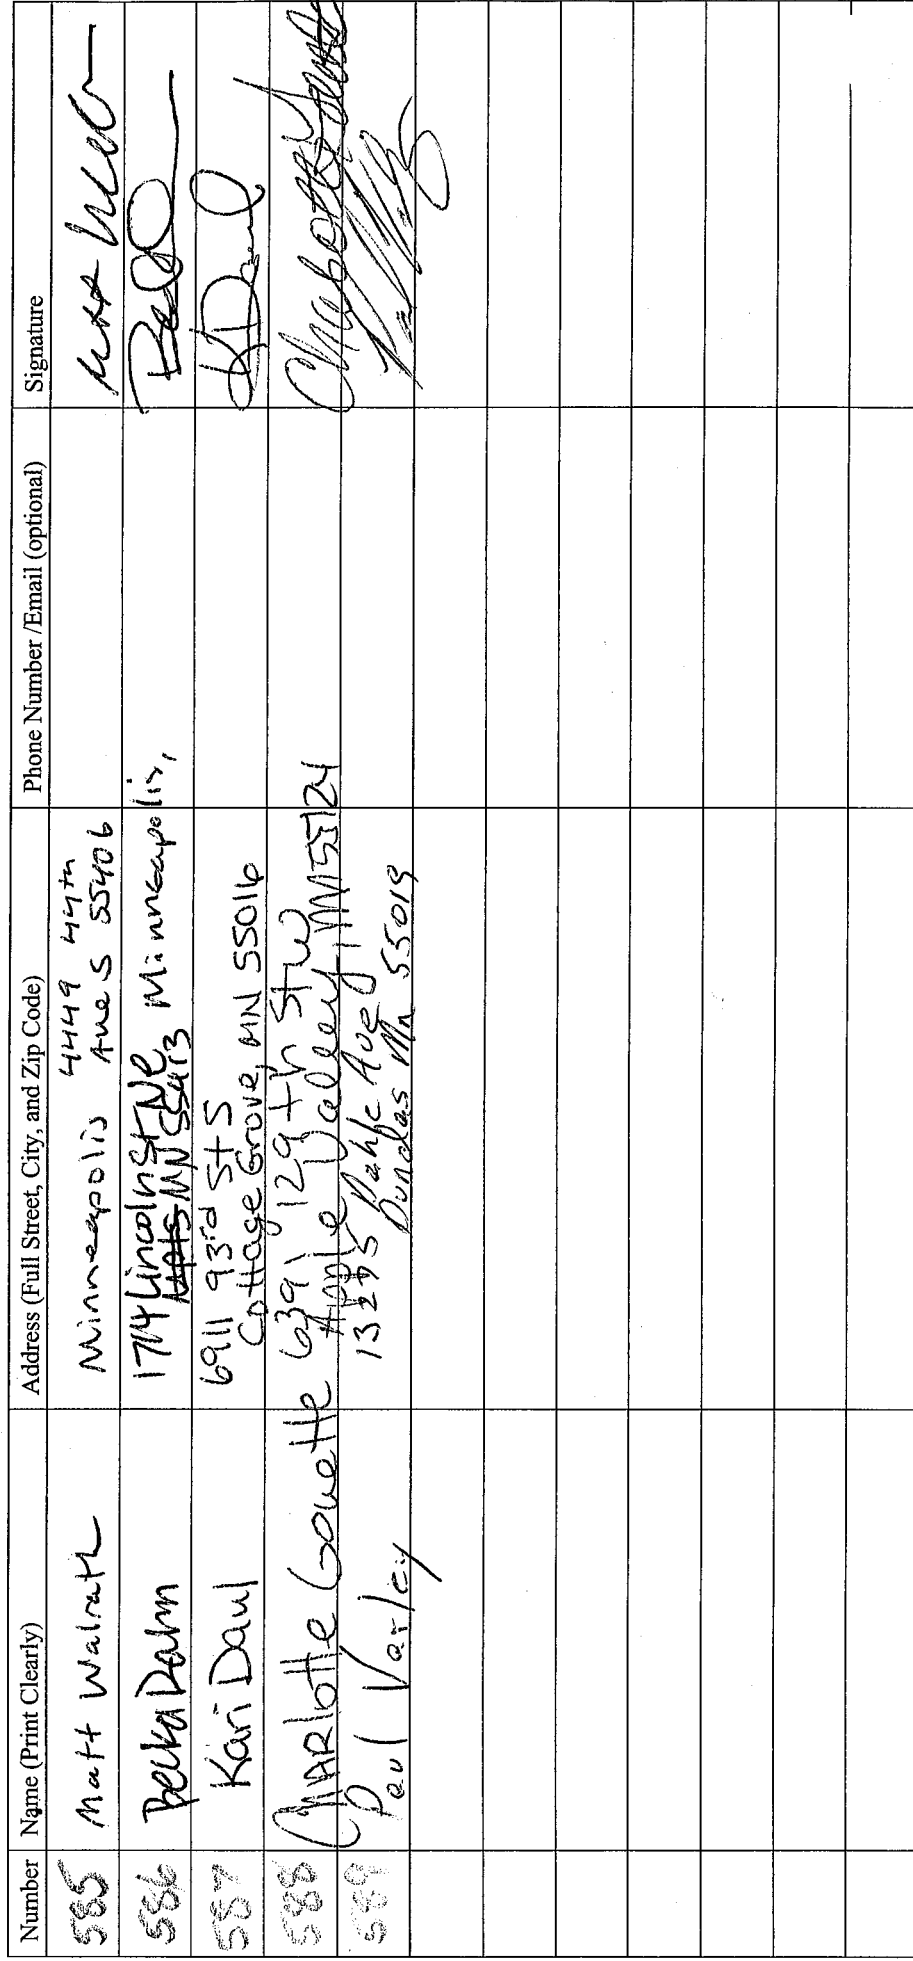 Number Name (Print Clearly) Address (Full Street, City, and Zip Code) Phone Number /Email (optional) Signature
585 Matt Walrath Minneapolis 4449 44th
Ave S 55406
586 Becka Dahn 1714 Lincoln St NE Minneapolis,
MN 55413
587 Kari Daul 6911 93rd St S
Cottage Grove, MN 55016
588 Charlotte Gouette 6391 129th St W
Apple Valley, MN 55124
589 Paul Varley Pahle Ave
Dundas Mn 55019